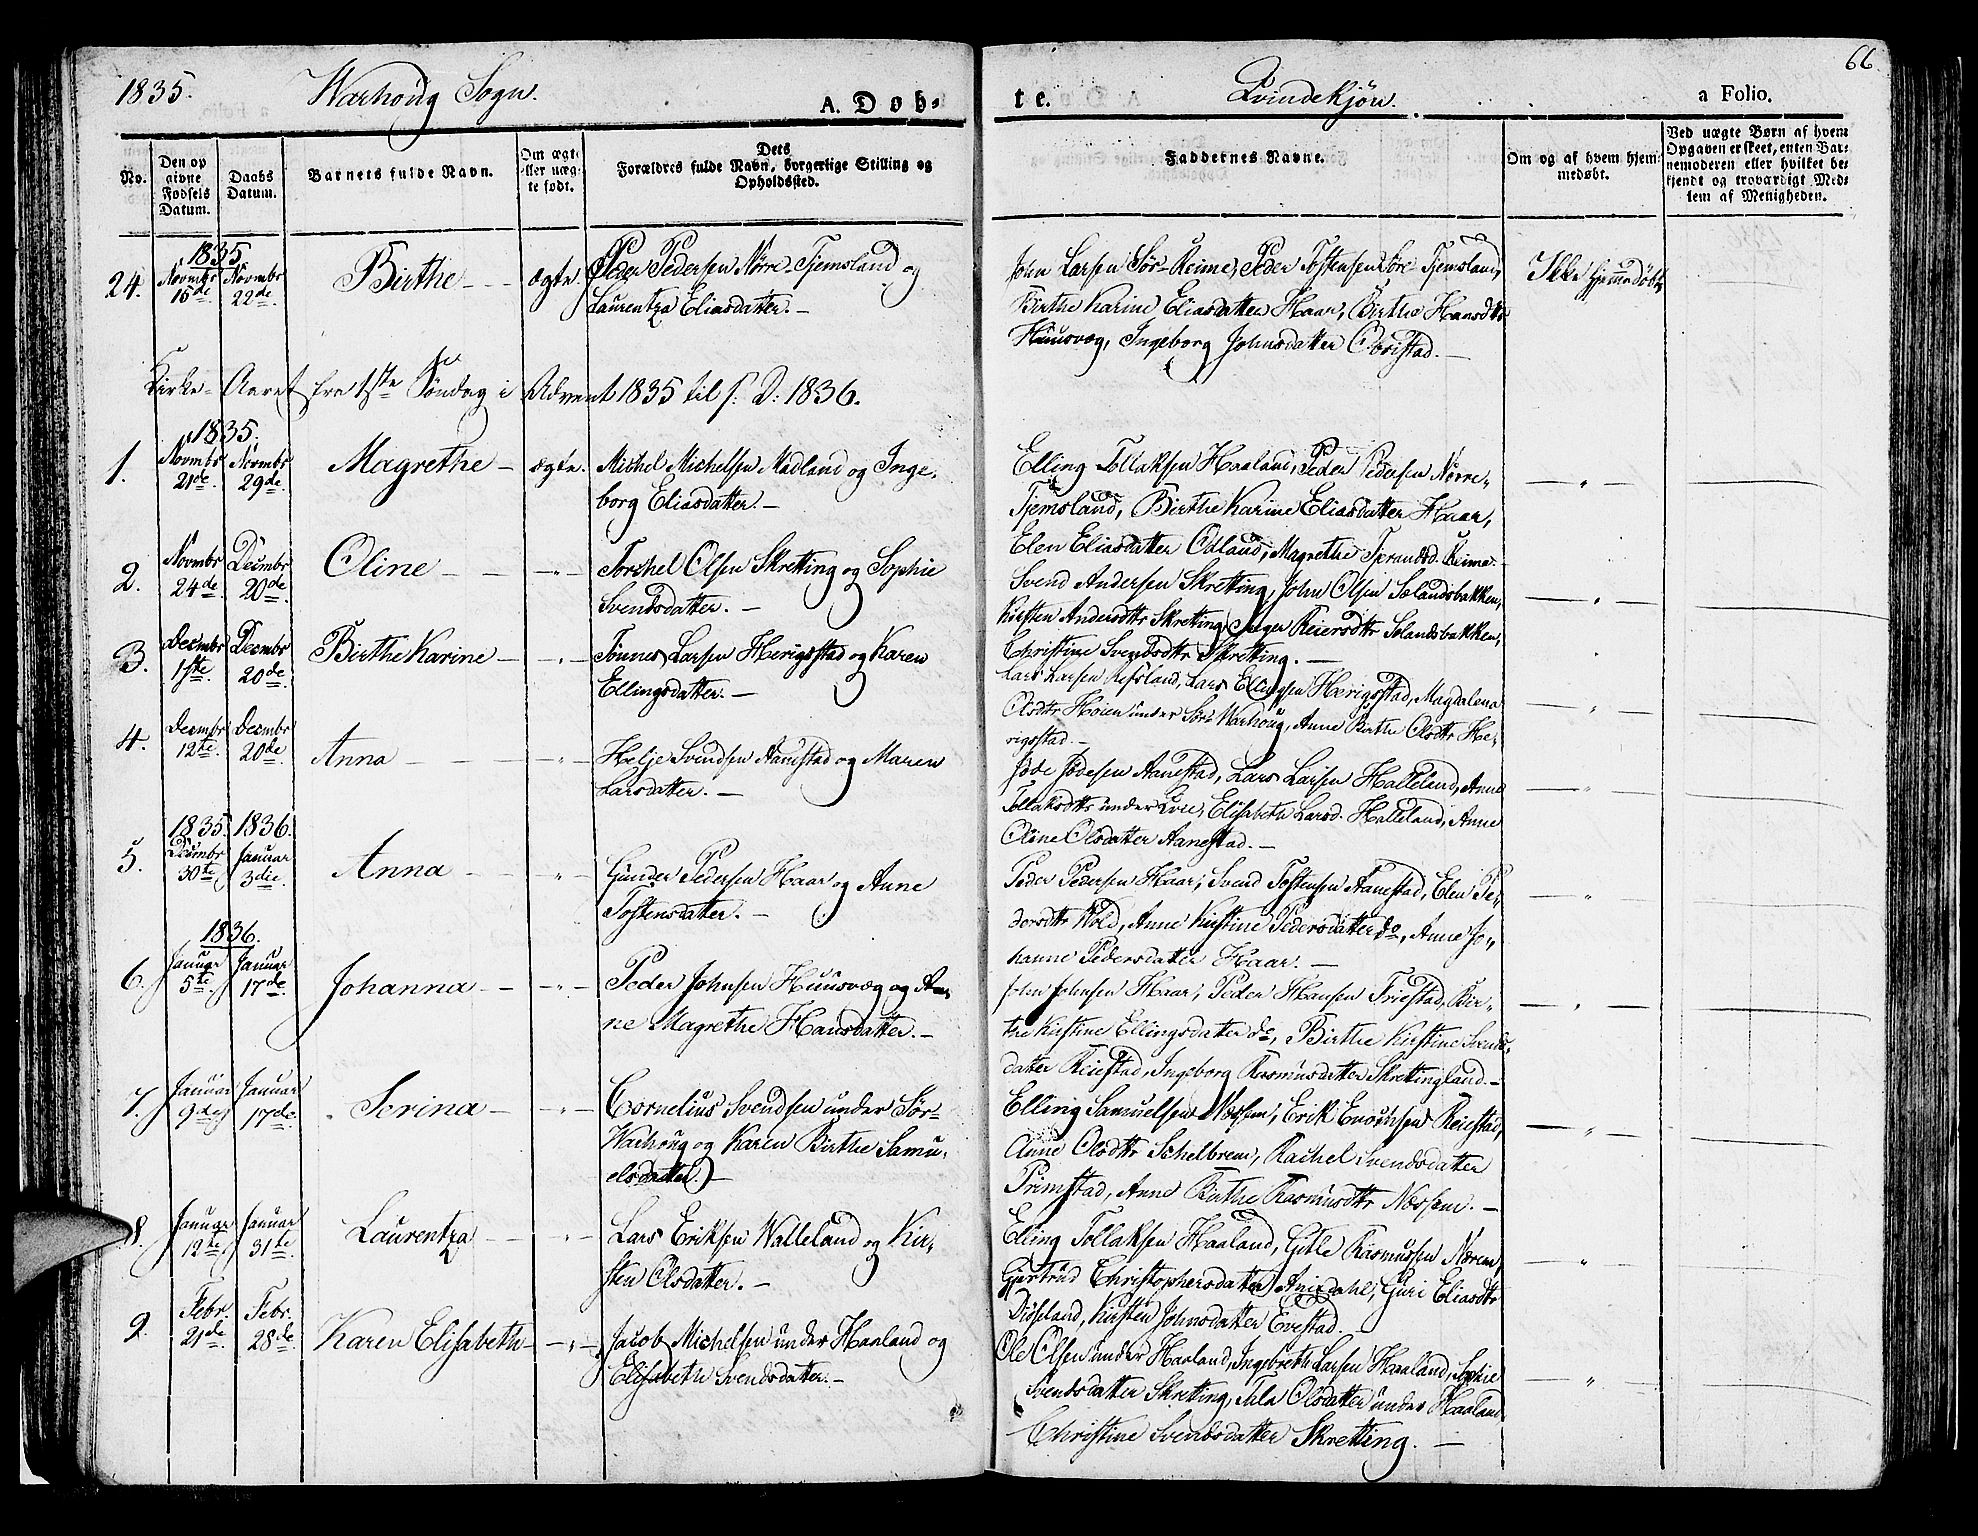 1835. Warhoug Sogn. A. Døb-
te. Qvindekjøn. a Folio. 66
No.
Den op givne Fødsels Datum.
Daabs Datum.
Barnets fulde Navn.
Om ægt- eller uæg- te født.
Dets Forældres fulde Navn, borgerlige Stilling og Opholdssted.
Faddernes Navne.
Om og af hvem hjem- medøbt.
Ved uægte Børn af hvem Opgaven er skeet, enten Bar- nemoderen eller hvilket be- kjendt og troværdigt Med- lem af Menigheden.
1835.
24. Novmbr 16de Novmbr 22de Birthe - - ægte. Peder Pedersen Nørre-Tjemsland og
Laurentza Eliasdatter. -
John Larsen Sør-Reime, Peder Tostensen Søre Tjemsland,
Birthe Karine Eliasdatter Haar, Birthe Hansdtr
Huusvæg, Ingeborg Johnsdatter Obristad. -
Ikke hjemmedøbt
Kirke-Aaret fra 1ste Søndag i Advent 1835 til s. D. 1836.
1835.
1. Novmbr 21de Novmbr 29de. Magrethe - ægte. Michel Michelsen Madland og Inge-
borg Eliasdatter. -
Elling Tollaksen Haaland, Peder Pedersen Nørre-
Tjemsland, Birthe Karine Eliasdatter Haar,
Elen Eliasdatter Odland, Magrethe Tprandsd. Reime. -
2. Novmbr 24de Decmbr 20de Oline - - - " - Torchel Olsen Skretting og Sophie
Svendsdatter. -
Svend Andersen Skretting, John Olsen Solandsbakken,
Kirsten Andersdtr Skretting, Reiersdtr Solandsbakken,
Christine Svendsdtr Skretting. -
3. Decmbr 1ste. Decmbr 20de Birthe Karine - - " - Tønnes Larsen Herigsstad og Karen
Ellingsdatter. -
Lars Larsen Refsland, Lars Ellingsen Herigsstad, Magdalena
Olsdtr Høien under Sør Warhoug, Anne Birthe Olsdtr He-
rigsstad. -
4. Decmbr 12te. Decmbr 20de. Anna - - - " - Helje Svendsen Aanestad og Maren
Larsdatter. -
Jøde Jødesen Aanestad, Lars Larsen Halleland, Anne
Tollaksdtr under Lvie, Elisabeth Larsd. Halleland, Anne
Oline Olsdatter Aanestad. -
1835. 1836.
5. Decmbr 30te Januar 3die. Anna - - " - Gunder Pedersen Haar og Anne
Tostensdatter. -
Peder Pedersen Haar, Svend Tostensen Aanestad, Elen Pe-
dersdtr Wold, Anne Kirstine Pedersdatter do, Anne Jo-
hanne Pedersdatter Haar. -
1836.
6. Januar 5te Januar 17de. Johanna - - " - Peder Johnsen Huusvæg og An-
ne Magrethe Hansdatter. -
John Johnsen Haar, Peder Hansen Friestad, Bir-
the Kirstine Ellingsdatter do, Birthe Kirstine Svends-
datter Reiestad, Ingeborg Rasmusdatter Skrettingland. -
7. Januar 9de Januar 17de. Serina - - " - Cornelius Svendsen under Sør-
Warhoug og Karen Birthe Samu-
elsdatter. -
Elling Samuelsen Nessem, Erik Reiestad,
Anne Olsdtr Schelbrem, Rachel Svendsdatter
Primstad, Anne Birthe Rasmusdtr Nessem. -
8. Januar 12te Januar 31te. Laurentza - - " - Lars Eriksen Walleland og Kir-
sten Olsdatter. -
Elling Tollaksen Haaland, Gitle Rasmussen Nærem,
Gjertrud Christophersdatter Aniksdahl, Guri Eliasdtr
Kirsten Johnsdatter Evestad.
9. Febr. 21de Febr. 28de Karen Elisabeth - - " - Jacob Michelsen under Haaland og
Elisabeth Svendsdatter. -
Ole Olsen under Haaland, Ingebreth Larsen Haaland, Sophie
Svendsdatter Skretting, Tala Olsdatter under Haaland
Christine Svendsdatter Skretting. -